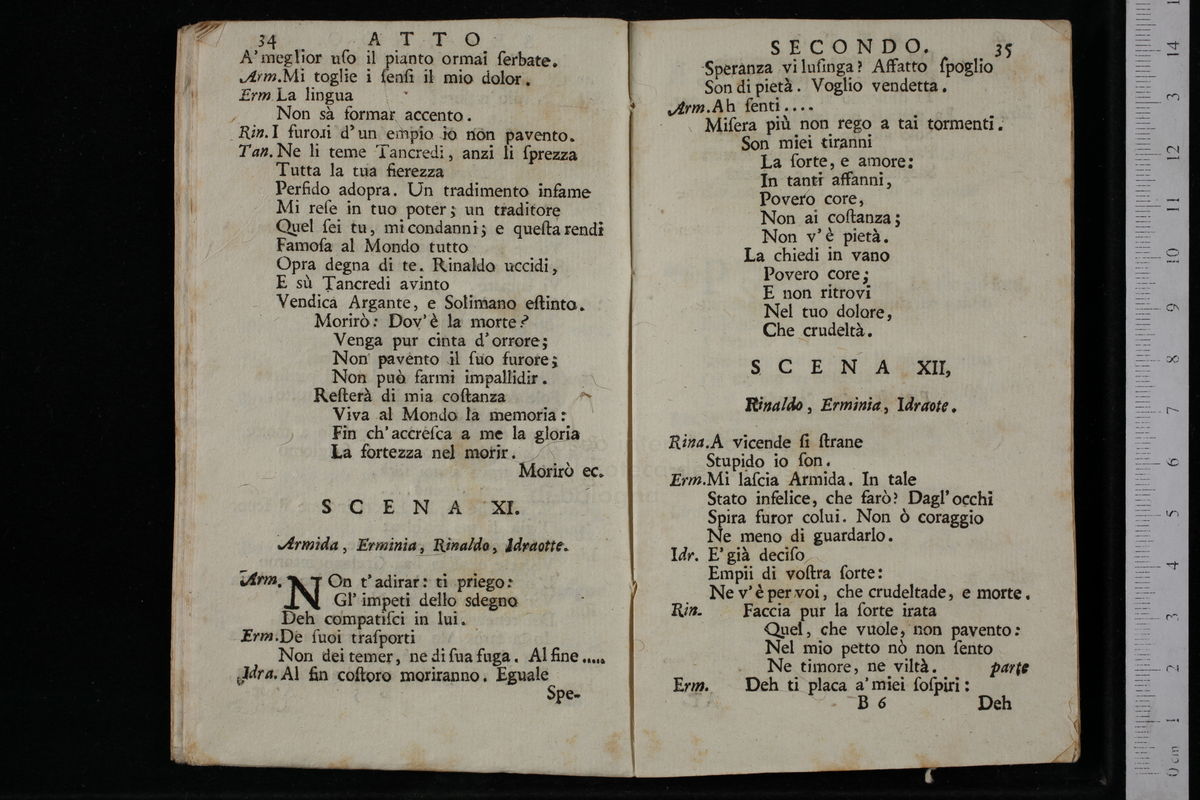 34 ATTO
A' meglior uſo il pianto ormai ſerbate.
Arm. Mi toglie i ſenſi il mio dolor.
Erm La lingua
Non sà formar accento.
Rin. I furori d'un empio io non pavento.
Tan. Ne li teme Tancredi, anzi li ſprezza
Tutta la tua fierezza
Perfido adopra. Un tradimento infame
Mi reſe in tuo poter; un traditore
Quel ſei tu, mi condanni; e queſta rendi
Famoſa al Mondo tutto
Opra degna di te. Rinaldo uccidi,
E sù Tancredi avinto
Vendica Argante, e Solimano eſtinto.
Morirò: Dov'è la morte?
Venga pur cinta d'orrore;
Non pavento il ſuo furore;
Non può farmi impallidir.
Reſterà di mia coſtanza
Viva al Mondo la memoria:
Fin ch'accreſca a me la gloria
La fortezza nel morir.
Morirò ec.
SCENA XI.
Armida, Erminia, Rinaldo, Idraotte.
Arm. NOn t'adirar: ti priego:
Gl'impeti dello sdegno
Deh compatiſci in lui.
Erm. De ſuoi traſporti
Non dei temer, ne di ſua fuga. Al fine.....
Idra. Al fin coſtoro moriranno. Eguale
Spe-
SECONDO. 35
Speranza vi luſinga? Affatto ſpoglio
Son di pietà. Voglio vendetta.
Arm. Ah ſenti....
Miſera più non rego a tai tormenti.
Son miei tiranni
La ſorte, e amore:
In tanti affanni,
Povero core,
Non ai coſtanza;
Non v'è pietà.
La chiedi in vano
Povero core;
E non ritrovi
Nel tuo dolore,
Che crudeltà.
SCENA XII,
Rinaldo, Erminia, Idraote.
Rina. A vicende ſi ſtrane
Stupido io ſon.
Erm. Mi laſcia Armida. In tale
Stato infelice, che farò? Dagl'occhi
Spira furor colui. Non ò coraggio
Ne meno di guardarlo.
Idr. E' già deciſo
Empii di voſtra ſorte:
Ne v'è per voi, che crudeltade, e morte.
Rin. Faccia pur la ſorte irata
Quel, che vuole, non pavento:
Nel mio petto nò non ſento
Ne timore, ne viltà. parte
Erm. Deh ti placa a' miei ſoſpiri:
B 6 Deh